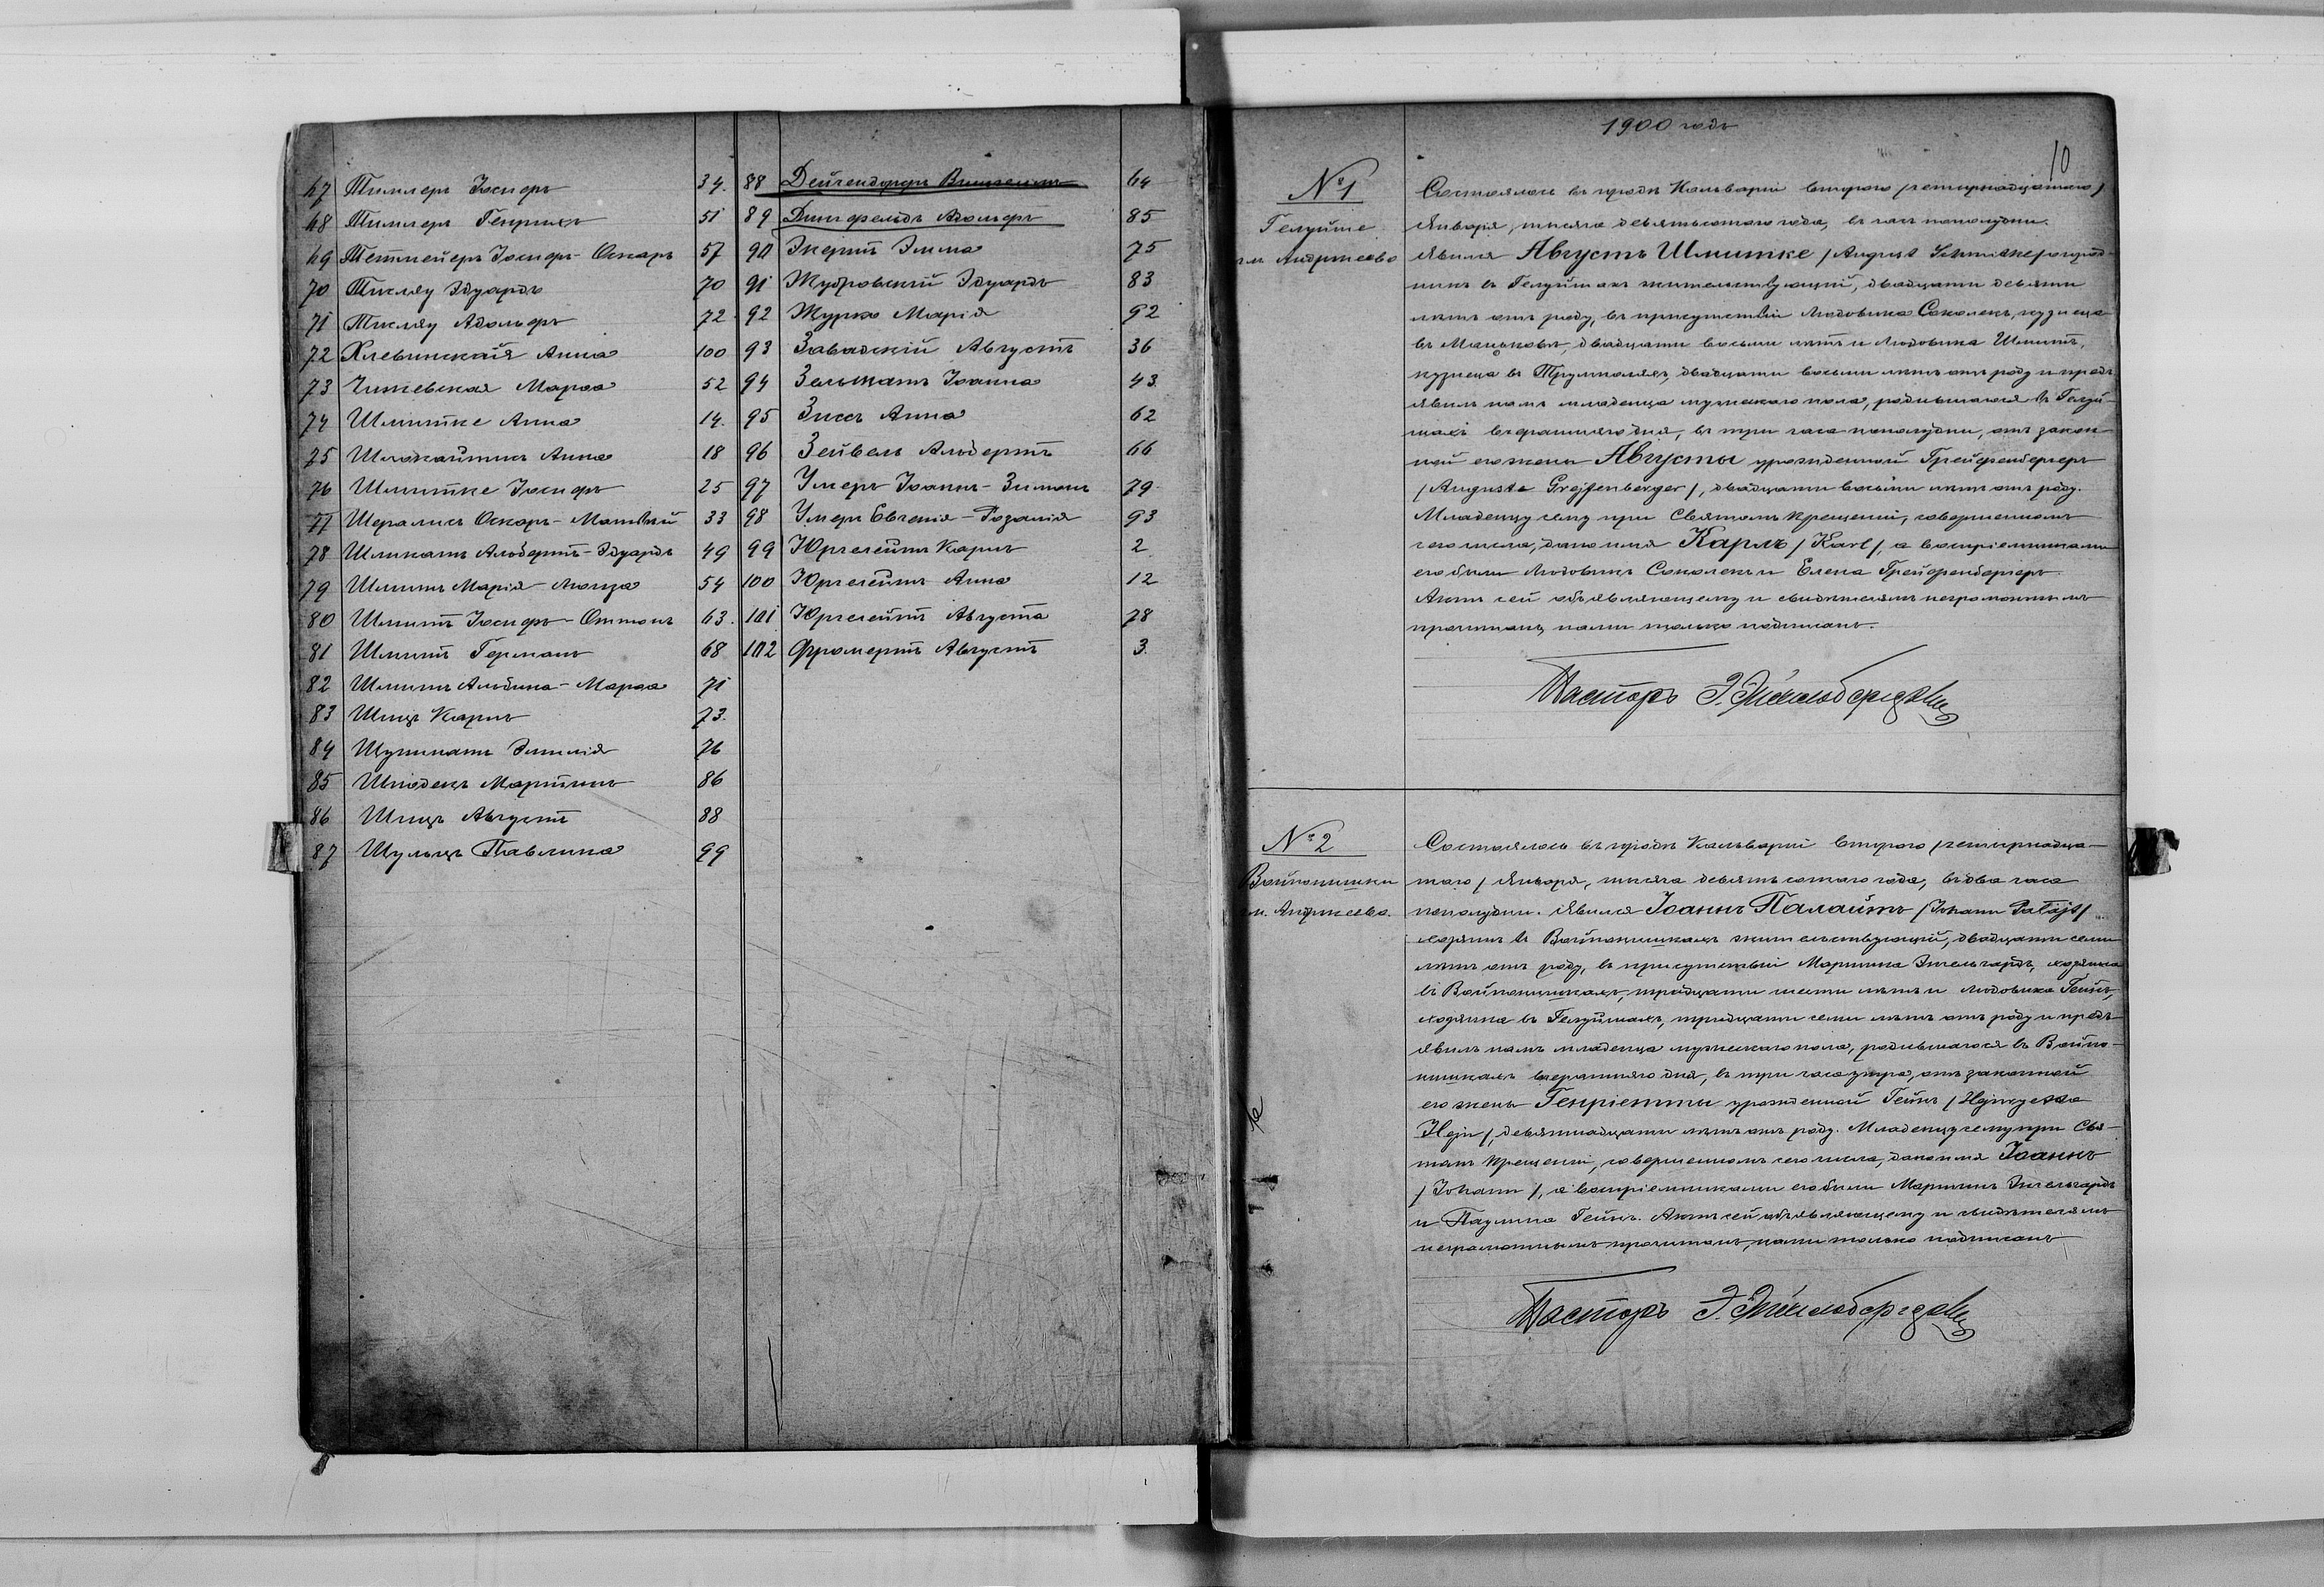 67 Тиллеръ Іосифъ 34.
68 Тиллеръ Генрихъ 51
69 Тетмейеръ Іосифъ-Оскаръ 57
70 Тислау Эдуардъ 70
71 Тислау Адольфъ 72
72 Хлевинская Анна 100
73 Чижевская Марѳа 52
74 Шмитке Анна 14.
75 Шлокайтисъ Анна 18
76 Шмитке Іосифъ 25
77 Шералисъ Оскаръ-Матвѣй 33
78 Шликатъ Альбертъ-Эдуардъ 49
79 Шмитъ Марія-Луиза 54
80 Шмитъ Іосифъ-Оттонъ 63.
81 Шмитъ Германъ 68
82 Шмитъ Альбина-Марѳа 71
83 Шицъ Карлъ 73.
84 Шуткатъ Эмилія 76
85 Шподекъ Мартинъ 86
86 Шицъ Августъ 88
87 Шульцъ Павлина 99
88 Дейчендорфъ Вильгельмъ 64
89 Дингфельдъ Адольфъ 85
90 Экертъ Эмма 75
91 Жудровскій Эдуардъ 83
92 Журко Марія 92
93 Завадскій Августъ 36
94 Зельматъ Іоанна 43.
95 Зиссъ Анна 62
96 Зейбель Альбертъ 66
97 Умеръ Іоаннъ-Зимонъ 79.
98 Умеръ Евгенія-Розалія 93
99 Юргелейтъ Карлъ 2
100 Юргелейтъ Анна 12
101 Юргелейтъ Августа 78
102 Фромертъ Августъ 3.
1900 годъ
10
№ 1
Гелуйше
гм. Андржеево
Состоялось въ городѣ Кальваріи второго /четырнадцатаго/
Января, тысяча девятьсотаго года, въ часъ пополудни.
Явился Августъ Шмитке /August Schmitke/ огород-
никъ въ Гелуйшахъ жительствующій, двадцати девяти
лѣтъ отъ роду, въ присутствіи Людовика Соколекъ, кузнеца
въ Мацьковѣ, двадцати восьми лѣтъ и Людовика Шмитъ,
кузнеца въ Трумполяхъ, двадцати восьми лѣтъ отъ роду и предъ-
явилъ намъ младенца мужескаго пола, родившагося въ Гелуй-
шахъ вчерашняго дня, въ три часа пополудни, отъ закон-
ной его жены Августы урожденной Грейфенбергеръ
/Auguste Grejfenberger/, двадцати восьми лѣтъ отъ роду.
Младенцу сему при Святомъ Крещеніи, совершенномъ
сего числа, дано имя Карлъ /Karl/, а воспріемниками
его были Людовикъ Соколекъ и Елена Грейфенбергеръ.
Актъ сей объявляющему и свидѣтелямъ неграмотнымъ
прочитанъ, нами только подписанъ.
Пасторъ Э.
№ 2
Войпонишки
гм. Андржеево.
Состоялось въ городѣ Кальваріи второго /четырнадца-
таго/ Января, тысяча девятьсотаго года, въ два часа
пополудни. Явился Іоаннъ Палайтъ /Johann Palajt/
хозяинъ въ Войпонишкахъ жительствующій, двадцати семи
лѣтъ отъ роду, въ присутствіи Мартина Энгельгардъ, хозяина
въ Войпонишкахъ, тридцати шести лѣтъ и Людовика Гейнъ,
хозяина въ Гелуйшахъ, тридцати семи лѣтъ отъ роду и предъ-
явилъ намъ младенца мужескаго пола, родившагося въ Войпо-
нишкахъ вчерашняго дня, въ три часа утра, отъ законной
его жены Генріетты урожденной Гейнъ
Hejn/, девятнадцати лѣтъ отъ роду. Младенцу сему при Свя-
томъ Крещеніи, совершенномъ сего числа, дано имя Іоаннъ
/Johann/, а воспріемниками его были Мартинъ Энгельгардъ
и Паулина Гейнъ. Актъ сей объявляющему и свидѣтелямъ
неграмотнымъ прочитанъ, нами только подписанъ
Пасторъ Э.